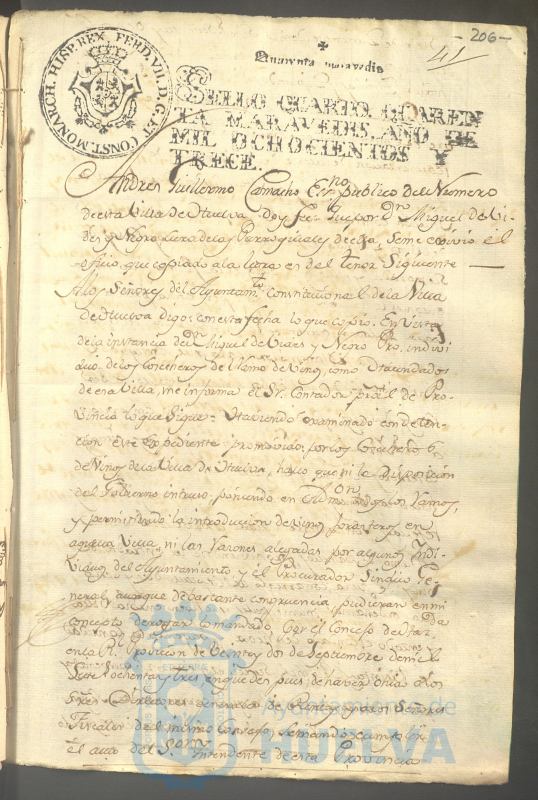 - 206 -
41
Quarenta maravedis
FERD. VII. D. G. ET CONST. MONARCH. HISP. REX.
SELLO QUARTO, QUAREN
TA MARAVEDIS, AÑO DE
MIL OCHOCIENTOS Y
TRECE.
Andres Guillermo Camacho Essno publico del Numero
de esta Villa de Huelva doy fee: Que por Dn Miguel de Vi
des y Negro, Cura de las Parroquiales de ella, se me exivio el
oficio, que copiado a la letra es del tenor Siguiente
A los Señores del Ayuntamto constitucional de la Villa
de Huelva digo: con esta fecha lo que copio. En vista
de la instancia de Dn Miguel de Vides y Negro Pro. indivi
duo de los Cosecheros de Vino, como Hacendados
de esa Villa, me informa el Sr. Contador pral de Pro
vincia lo que sigue = Haviendo examinado con deten
cion este expediente promovido por los Cosecheros
de Vinos de la Villa de Huelva, hallo que ni la Disposicion
del Govierno intruso poniendo en Admon todos los Ramos,
y permitiendo la introduccion de Vinos forasteros en
aquella Villa, ni las razones alegadas por algunos Indi
viduos del Ayuntamiento y el Procurador Sindico Ge
neral, aunque de bastante congruencia, pudieran en mi
concepto derogar lo mandado por el Consejo de Hazda
en la Rl. Provision de Veinte y dos de Septiembre de mil
Sete. setenta y tres en que des pues de haver oido a los
Sres. Directores generales de Rentas y a los Señores
Fiscales del mismo Consejo, se mandó cumplir
el auto del Sor. Intendente de esta Provincia
Ayuntamiento de
HUELVA